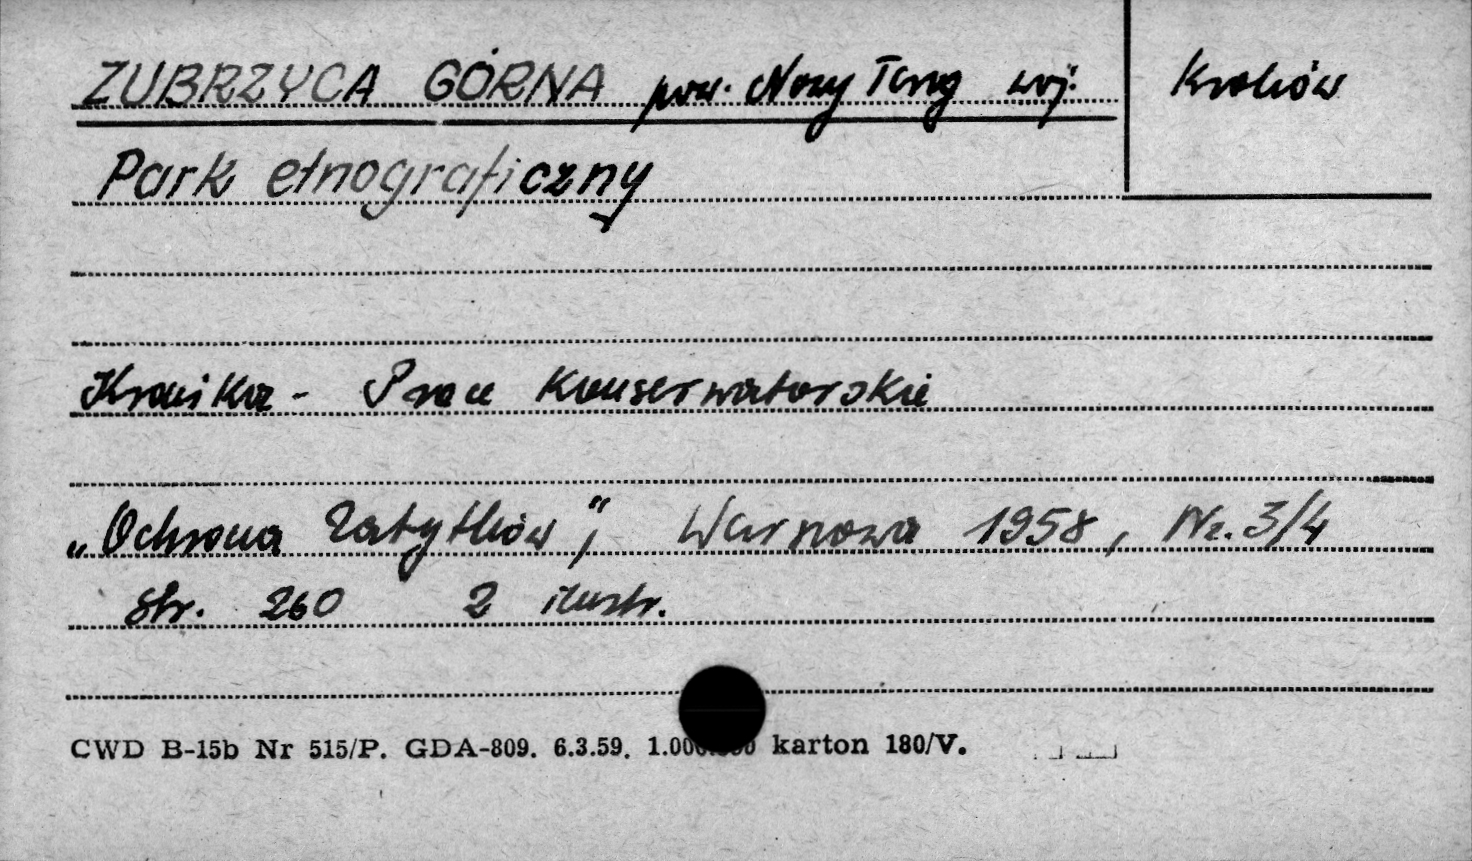 ZUBRZYCA GÓRNA pow. Nowy Targ woj. Kraków
Park etnograficzny
Kronika - Prace Konserwatorskie
„Ochrona Zabytków", Warszawa 1958, Nr. 3/4
str. 260 2 ilustr.
CWD B-15b Nr 515/P. GDA-809. 6.3.59. 1.000.000 karton 180/V.